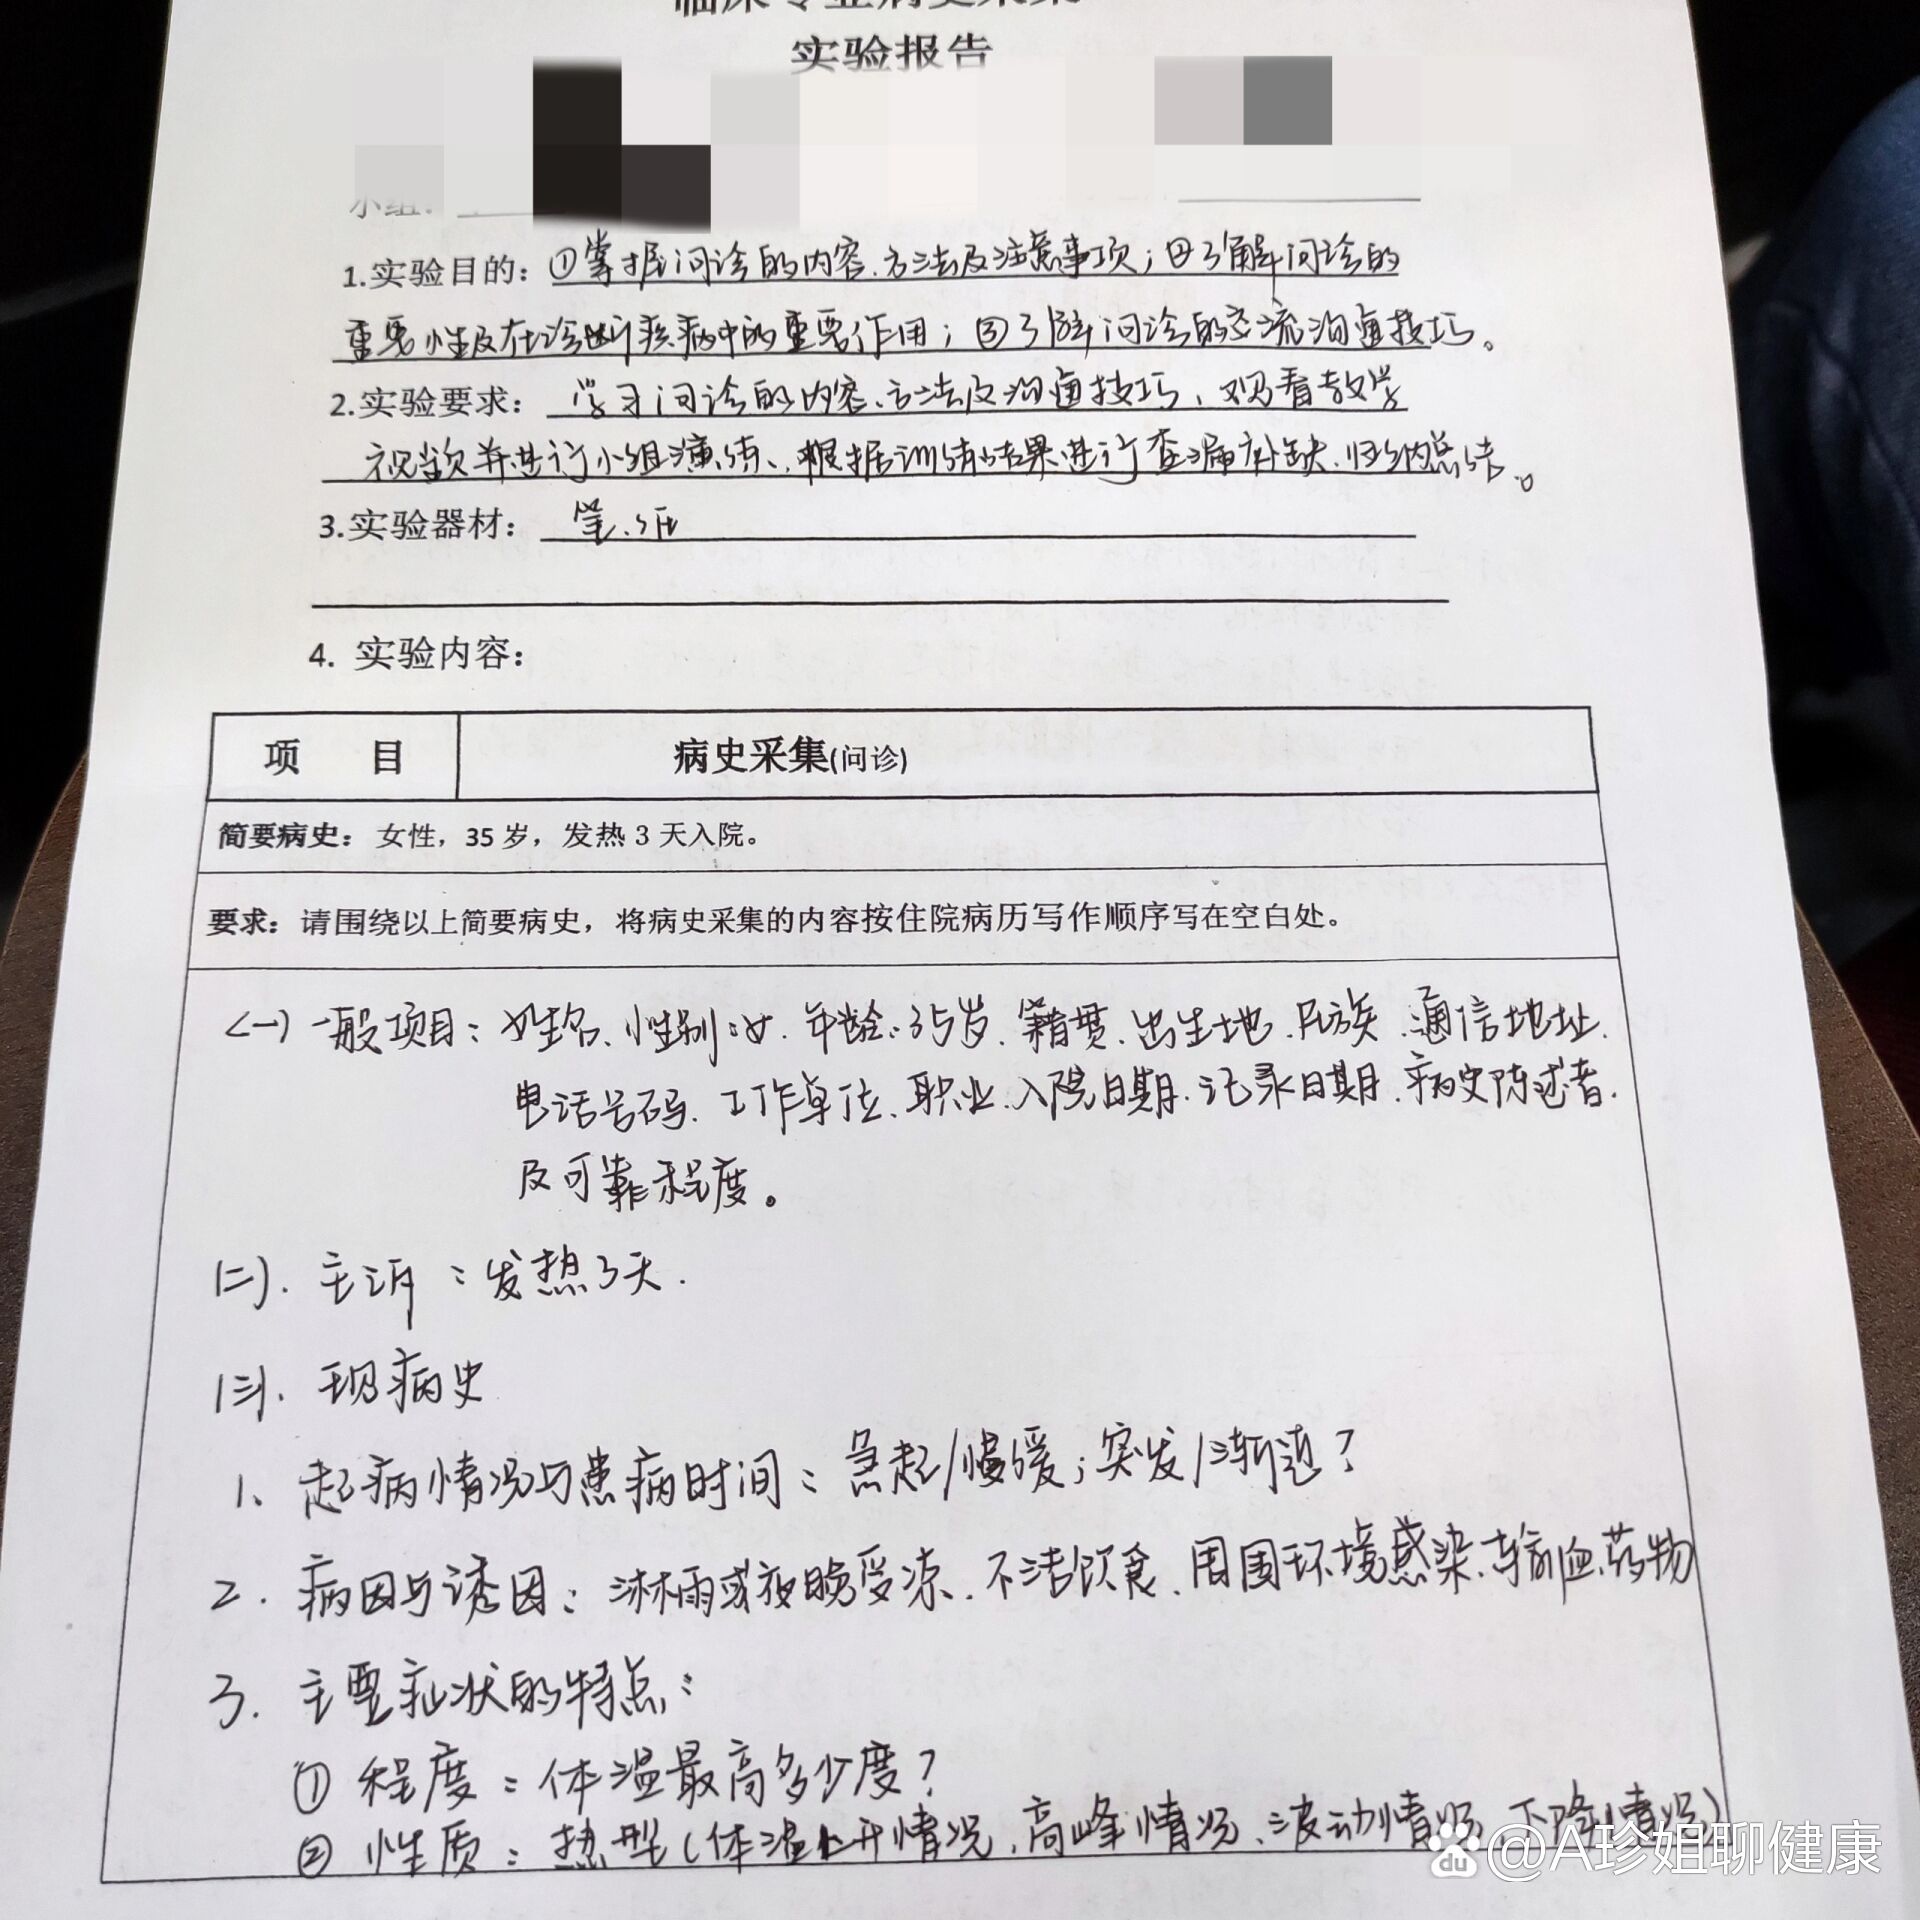 临床专业病史采集
实验报告
小组:
1.实验目的: ①掌握问诊的内容、方法及注意事项; ②了解问诊的
重要性及在诊断疾病中的重要作用; ③了解问诊的交流沟通技巧。
2.实验要求: 学习问诊的内容、方法及沟通技巧、观看教学
视频并进行小组演练、根据训练结果进行查漏补缺、归纳总结。
3.实验器材: 笔、纸
4. 实验内容:
项 目 病史采集(问诊)
简要病史: 女性, 35岁, 发热3天入院。
要求: 请围绕以上简要病史, 将病史采集的内容按住院病历写作顺序写在空白处。
(一) 一般项目: 姓名、性别:女、年龄:35岁、籍贯、出生地、民族、通信地址、
电话号码、工作单位、职业、入院日期、记录日期、病史陈述者、
及可靠程度。
(二). 主诉: 发热3天.
(三). 现病史
1、起病情况与患病时间: 急起/慢缓; 突发/渐进?
2. 病因与诱因: 淋雨或夜晚受凉、不洁饮食、周围环境感染、输血、药物
3. 主要症状的特点:
① 程度: 体温最高多少度?
② 性质: 热型(体温上升情况、高峰情况、波动情况、下降情况)
du @A珍姐聊健康